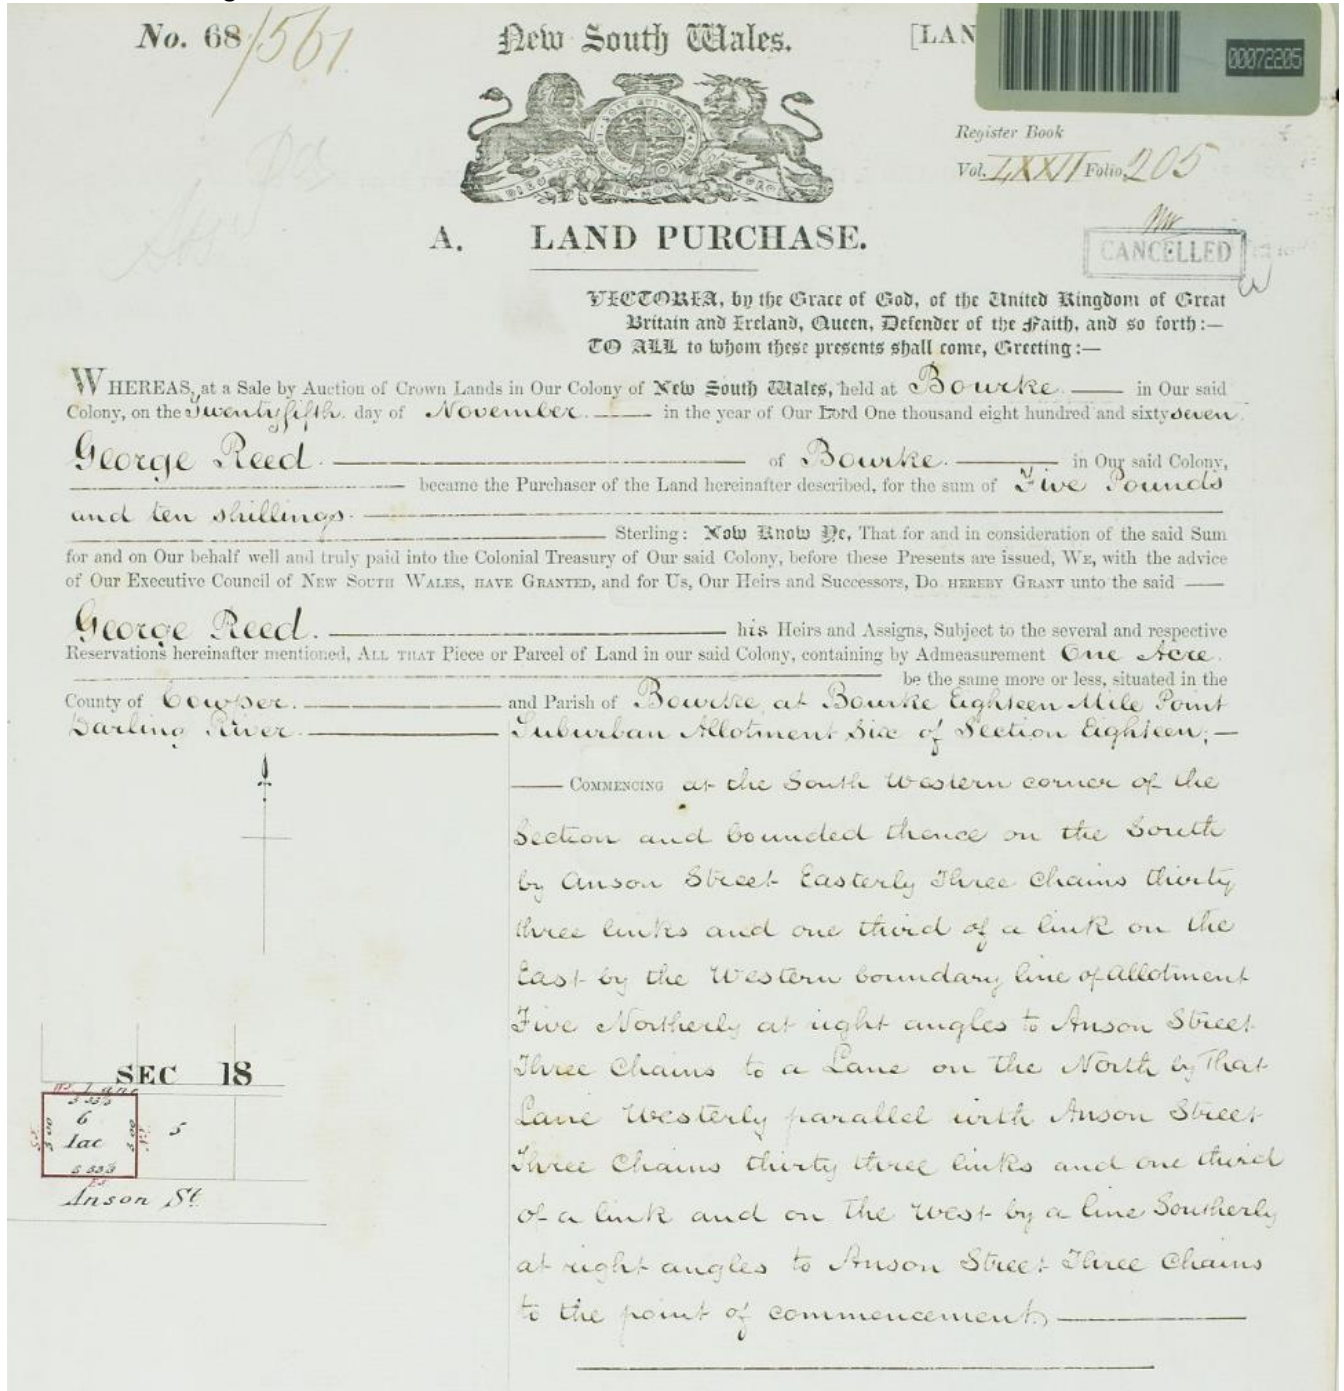 No. 68/561
New South Wales.
[LAN
00072205
Register Book
Vol. LXXII Folio 205
A. LAND PURCHASE.
CANCELLED
VICTORIA, by the Grace of God, of the United Kingdom of Great
Britain and Ireland, Queen, Defender of the Faith, and so forth:—
TO ALL to whom these presents shall come, Greeting:—
WHEREAS, at a Sale by Auction of Crown Lands in Our Colony of New South Wales, held at Bourke — in Our said
Colony, on the Twenty fifth day of November — in the year of Our Lord One thousand eight hundred and sixty seven.
George Reed. — of Bourke. — in Our said Colony,
— became the Purchaser of the Land hereinafter described, for the sum of Five Pounds
and ten shillings. —
— Sterling: Now Know Ye, That for and in consideration of the said Sum
for and on Our behalf well and truly paid into the Colonial Treasury of Our said Colony, before these Presents are issued, WE, with the advice
of Our Executive Council of NEW SOUTH WALES, HAVE GRANTED, and for Us, Our Heirs and Successors, DO HEREBY GRANT unto the said —
George Reed. — his Heirs and Assigns, Subject to the several and respective
Reservations hereinafter mentioned, ALL THAT Piece or Parcel of Land in our said Colony, containing by Admeasurement One Acre.
— be the same more or less, situated in the
County of Cowper. — and Parish of Bourke at Bourke Eighteen Mile Point
Darling River — Suburban Allotment Six of Section Eighteen; —
— COMMENCING at the South Western corner of the
Section and bounded thence on the South
by Anson Street Easterly Three Chains thirty
three links and one third of a link on the
East by the Western boundary line of Allotment
Five Northerly at right angles to Anson Street
Three Chains to a Lane on the North by That
Lane Westerly parallel with Anson Street
Three Chains thirty three links and one third
of a link and on the West by a line Southerly
at right angles to Anson Street Three Chains
to the point of commencement. —
SEC 18
Lane
6
1ac
3 00
3 00
5
Anson St.